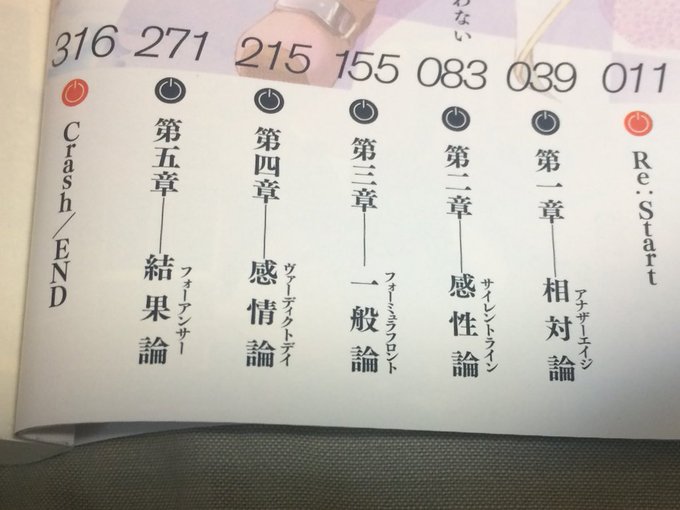 わない
011
Re:Start
039
第一章――相対論
アナザーエイジ
083
第二章――感性論
サイレントライン
155
第三章――一般論
フォーミュラフロント
215
第四章――感情論
ヴァーディクトデイ
271
第五章――結果論
フォーアンサー
316
Crash/END